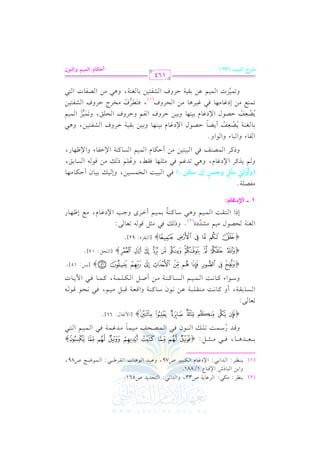 شرح البيت (٦٢)
٤٦١
أحكام الميم والنون
وتميَّزت الميم عن بقية حروف الشفتين بالغنة، وهي من الصفات التي
تمنع من إدغامها في غيرها من الحروف(١)، فتطرُّف مخرج حروف الشفتين
يُضْعِفُ حصول الإدغام بينها وبين حروف الفم وحروف الحلق، وتميُّز الميم
بالغنة يُضْعِفُ أيضاً حصول الإدغام بينها وبين بقية حروف الشفتين، وهي
الفاء والباء والواو.
وذكر المصنف في البيتين من أحكام الميم الساكنة الإخفاء والإظهار،
ولم يذكر الإدغام، وهي تدغم في مثلها فقط، وعُلِمَ ذلك من قوله السابق،
(وأَوَّلَيْ مثلٍ وجنسٍ إن سكن..) في البيت الخمسين، وإليك بيان أحكامها
مفصلة.
١ ـ الإدغام:
إذا التقت الميم وهي ساكنةٌ بميم أخرى وجب الإدغام، مع إظهار
الغنة لحصول ميم مشدَّدة(٢). وذلك في مثل قوله تعالى:
﴿خَلَقَ لَكُم مَّا فِي الْأَرْضِ جَمِيعًا﴾ [البقرة: ٢٩].
﴿وَنُفِخَ فِي الصُّورِ فَإِذَا هُم مِّنَ الْأَجْدَاثِ إِلَى رَبِّهِمْ يَنسِلُونَ﴾ [يس: ٥١].
وسواء كانت الميم الساكنة من أصل الكلمة، كما في الآيات
السابقة، أو كانت منقلبة عن نون ساكنة واقعة قبل ميم، في نحو قوله
تعالى:
﴿فَإِن يَكُن مِّنكُم مِّائَةٌ صَابِرَةٌ يَغْلِبُوا مِائَتَيْنِ﴾ [الأنفال: ٦٦].
وقد رُسمت تلك النون في المصحف ميماً مدغمة في الميم التي
بعدها، في مثل: ﴿فَوَيْلٌ لَّهُم مِّمَّا كَتَبَتْ أَيْدِيهِمْ وَوَيْلٌ لَّهُم مِّمَّا يَكْسِبُونَ﴾
(١) ينظر: الداني: الإدغام الكبير ص٩٧، وعبد الوهاب القرطبي: الموضح ص٩٨،
وابن الباذش الإقناع ١/١٨٨.
(٢) ينظر: مكي: الرعاية ص٣٣، والداني: التحديد ص١٦٥.